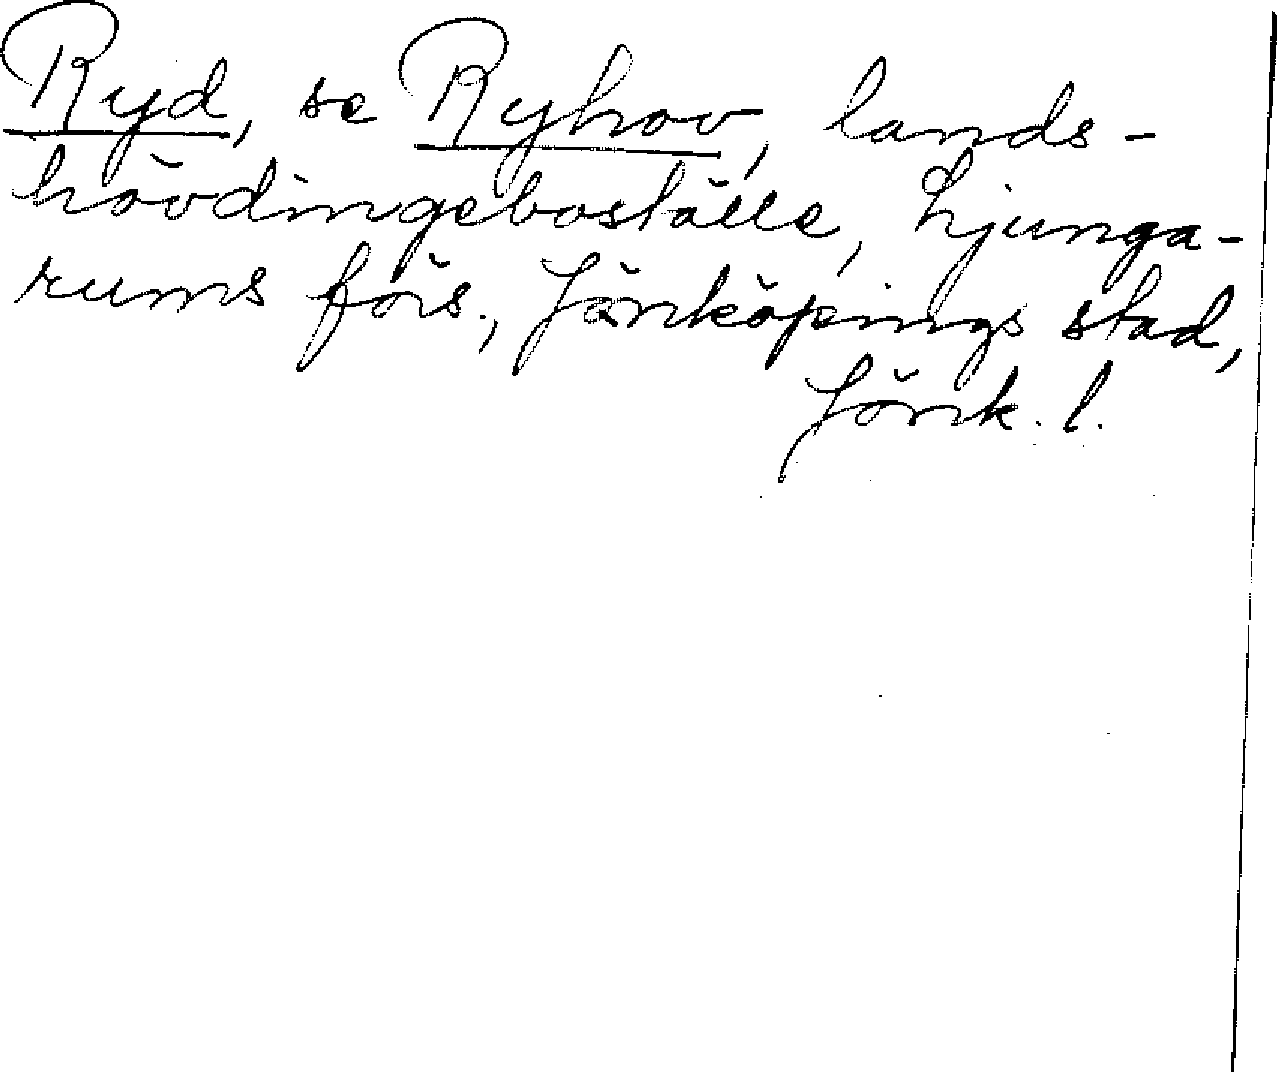 Ryd, se Ryhov, lands-
hövdingeboställe, Ljunga-
rums förs., Jönköpings stad,
Jönk. l.